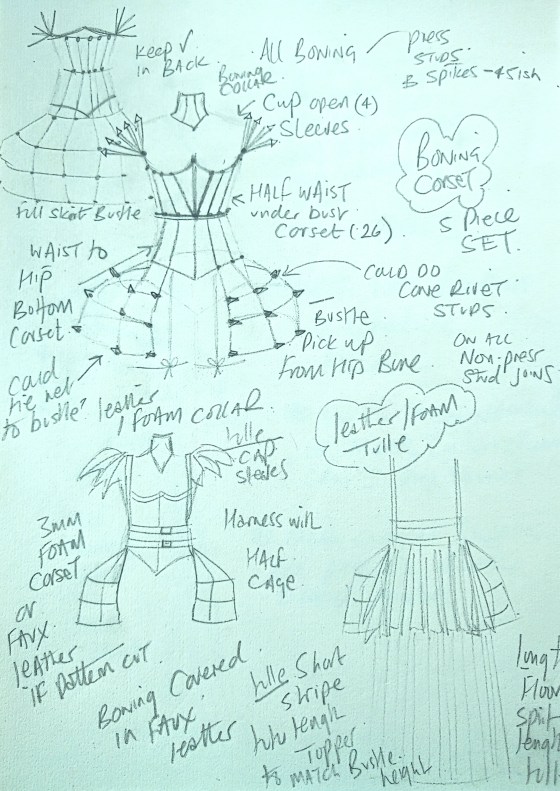 KEEP ✓
in BACK
ALL BONING
PRESS
STUDS
& SPIKES - 45ish
BONING
COLLAR
Cup open (4)
Sleeves
BONING
CORSET
5 Piece
SET.
HALF WAIST
under bust
Corset (.26)
Full Skirt Bustle
WAIST to
HIP
Bottom
Corset
COULD DO
CONE RIVET
STUDS
ON ALL
Non-press
Stud joins
Bustle
Pick up
From Hip Bone
Could
tie net
to bustle?
leather
/ FOAM COLLAR
tulle
CAP
Sleeves
leather/FOAM
Tulle
3mm
FOAM
CORSET
or
FAUX
leather
IF Pattern CUT
Harness with
HALF
CAGE
Boning Covered
in FAUX
leather
tulle Short
Stripe
tutu length
Topper
to MATCH Bustle
height
long
Floor
Split
length
tull